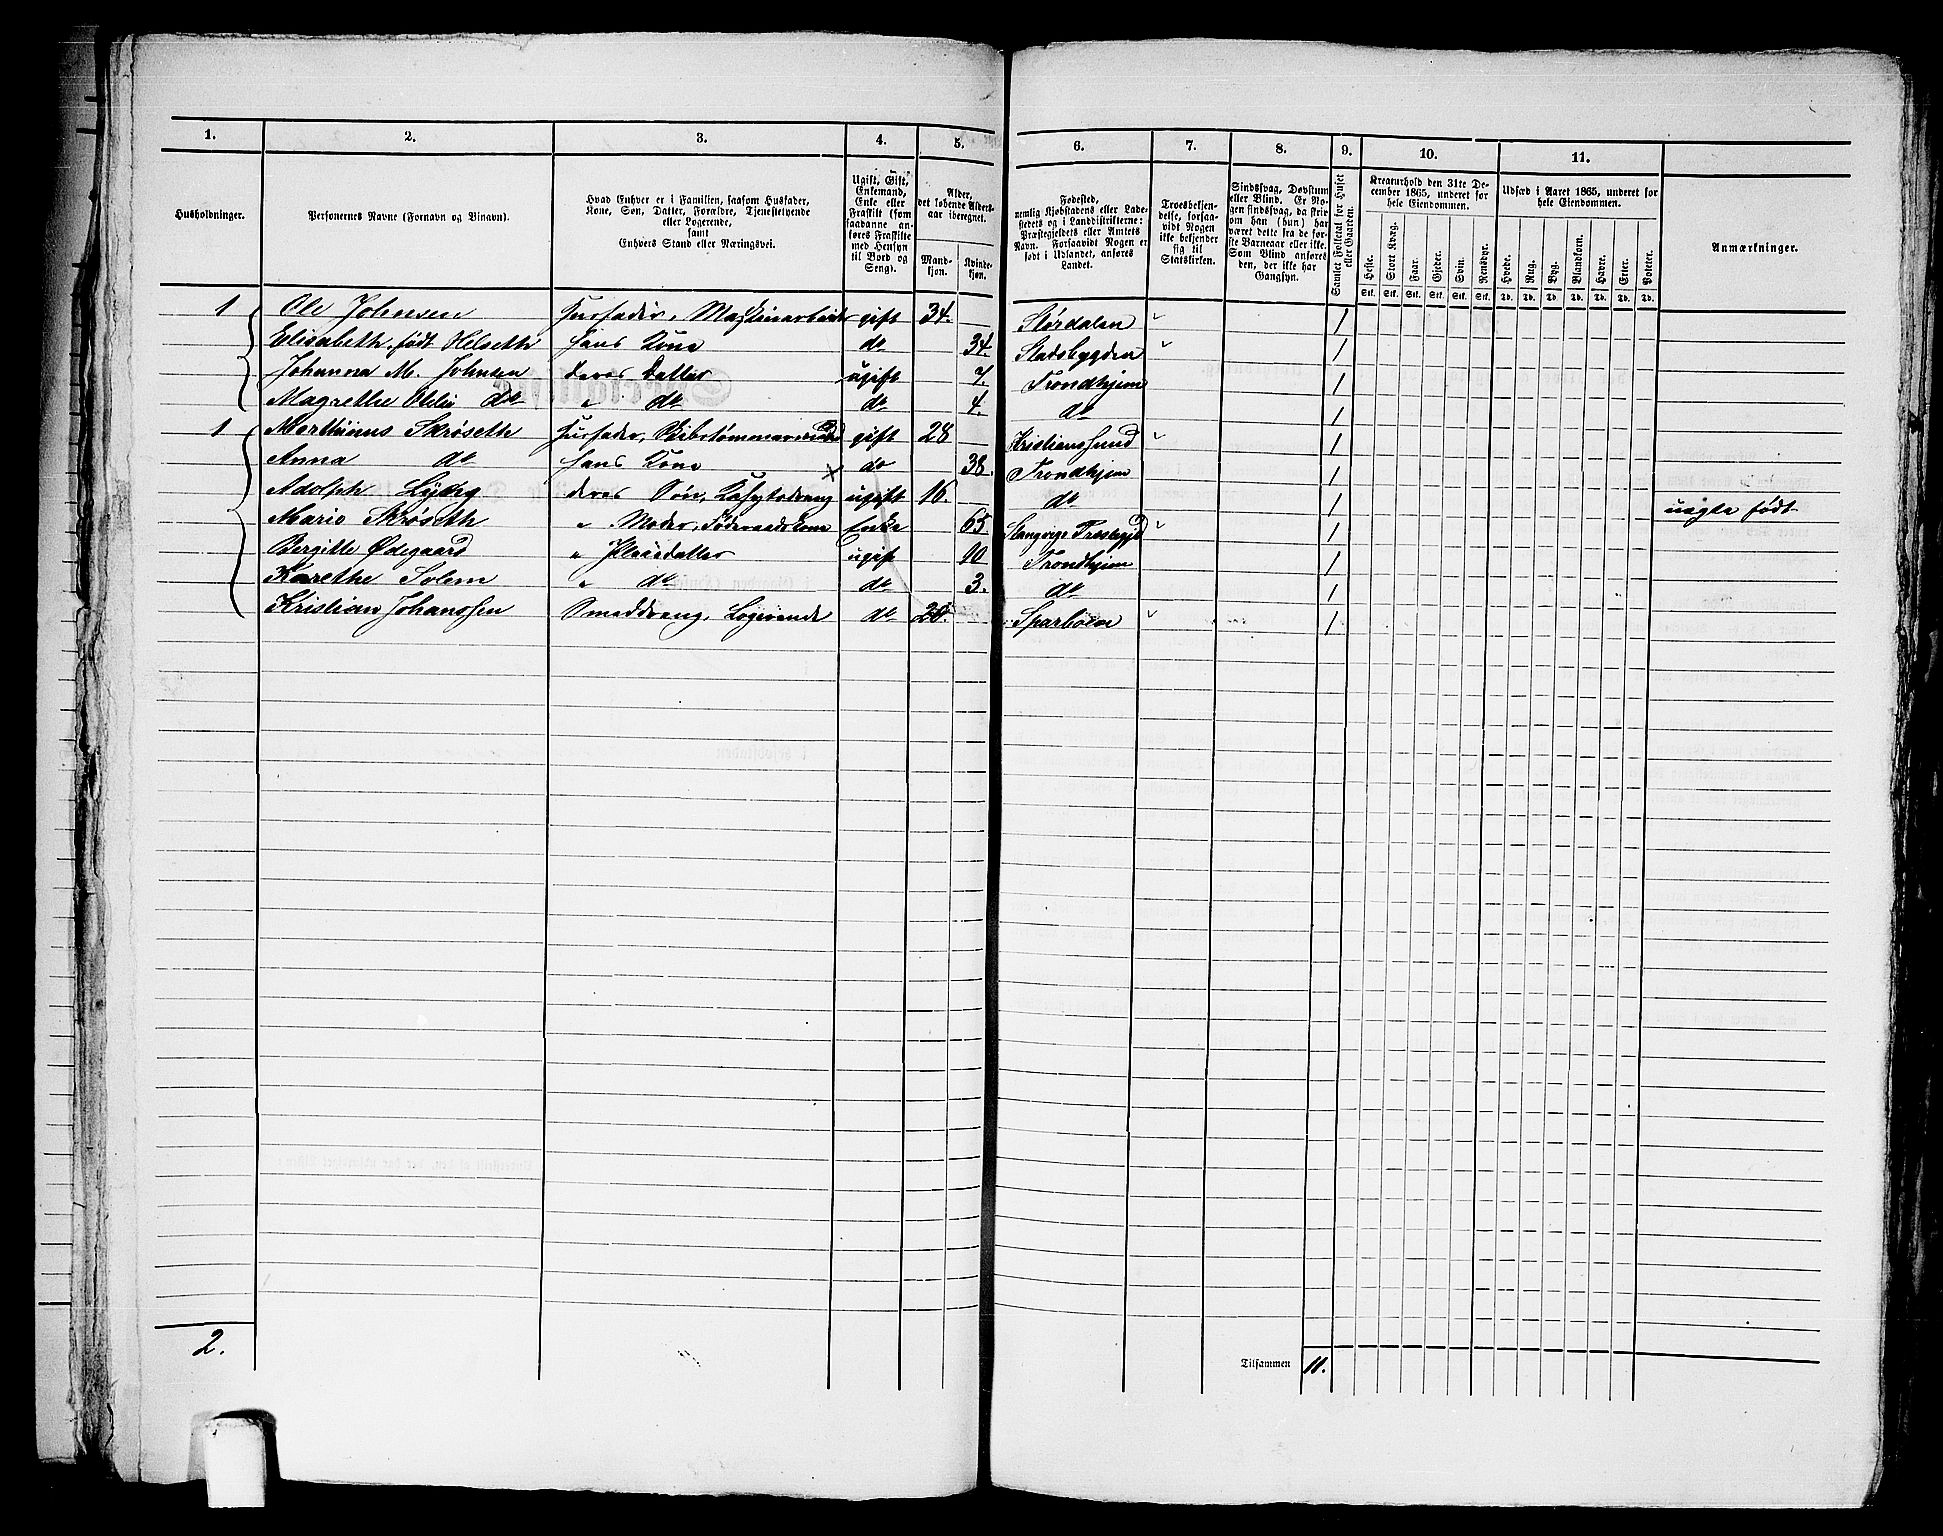 1. 2. 3. 4. 5. 6. 7. 8. 9. 10. 11.
Husholdninger.
Personernes Navne (Fornavn og Tilnavn).
Hvad Enhver er i Familien, saasom Husfader, Kone, Søn, Datter, Forældre, Tjenestetyende eller Logerende, samt Enhvers Stand eller Næringsvei.
Ugift, Gift, Enkemand, Enke eller Fraskilt (som saadanne anføres Fraskilte med Hensyn til Bord og Seng).
Alder, det løbende Aldersaar iberegnet.
Mandkjøn. Kvindekjøn.
Fødested, nemlig Kjøbstadens eller Ladestedets og i Landdistrikterne: Præstegjeldets eller Amtets Navn. Forsaavidt Nogen er født i Udlandet, anføres Landet.
Troesbekjendelse, forsaavidt Nogen ikke bekjender sig til Statskirken.
Sindssvag, Døvstum eller Blind. Er Nogen sindssvag, da skrives om han (hun) har været dette fra de første Barneaar eller ikke. Som Blind anføres den, der ikke har Gangsyn.
Samlet Folketal for Huset eller Gaarden.
Kreaturhold den 31te December 1865, underet for hele Eiendommen.
Heste. Stort Kvæg. Faar. Gjeder. Svin. Rensdyr.
Stk. Stk. Stk. Stk. Stk. Stk.
Udsæd i Aaret 1865, underet for hele Eiendommen.
Hvede. Rug. Byg. Blandkorn. Havre. Erter. Poteter.
Td. Td. Td. Td. Td. Td. Td.
Anmærkninger.
1 Ole Johnsen Husfader, Maskinarbeider gift 34. Størdalen 1
Elisabeth født Helseth Hans Kone do 34. Stadsbygden 1
Johanna M. Johnsen deres Datter ugift 7. Trondhjem 1
Magrethe do " do do 4. do 1
1 Marthinus Skrøseth Husfader, gift 28 Kristianssund 1
Anna do Hans Kone do 38. Trondhjem 1
Adolph deres Søn, ugift 16. do 1 uægte født
Marie Skrøseth " Moder, Føderaadskone Enke 65 1
Bergitte Ødegaard " Pleiedatter ugift 10 Trondhjem 1
Karethe Solem " do do 3. do 1
Kristian Johanssen Smeddreng, Logerende do 20. Sparboen 1
2. Tilsammen 11.